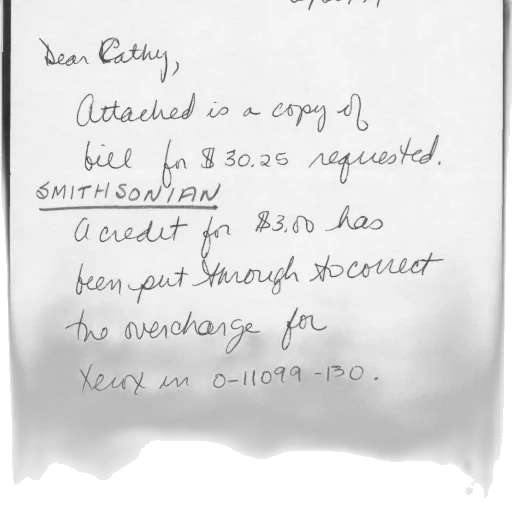 Dear Cathy,
Attached is a copy of
bill for $30.25 requested.
SMITHSONIAN
A credit for $3.00 has
been put through to correct
the overcharge for
Xerox in 0-11099-130.